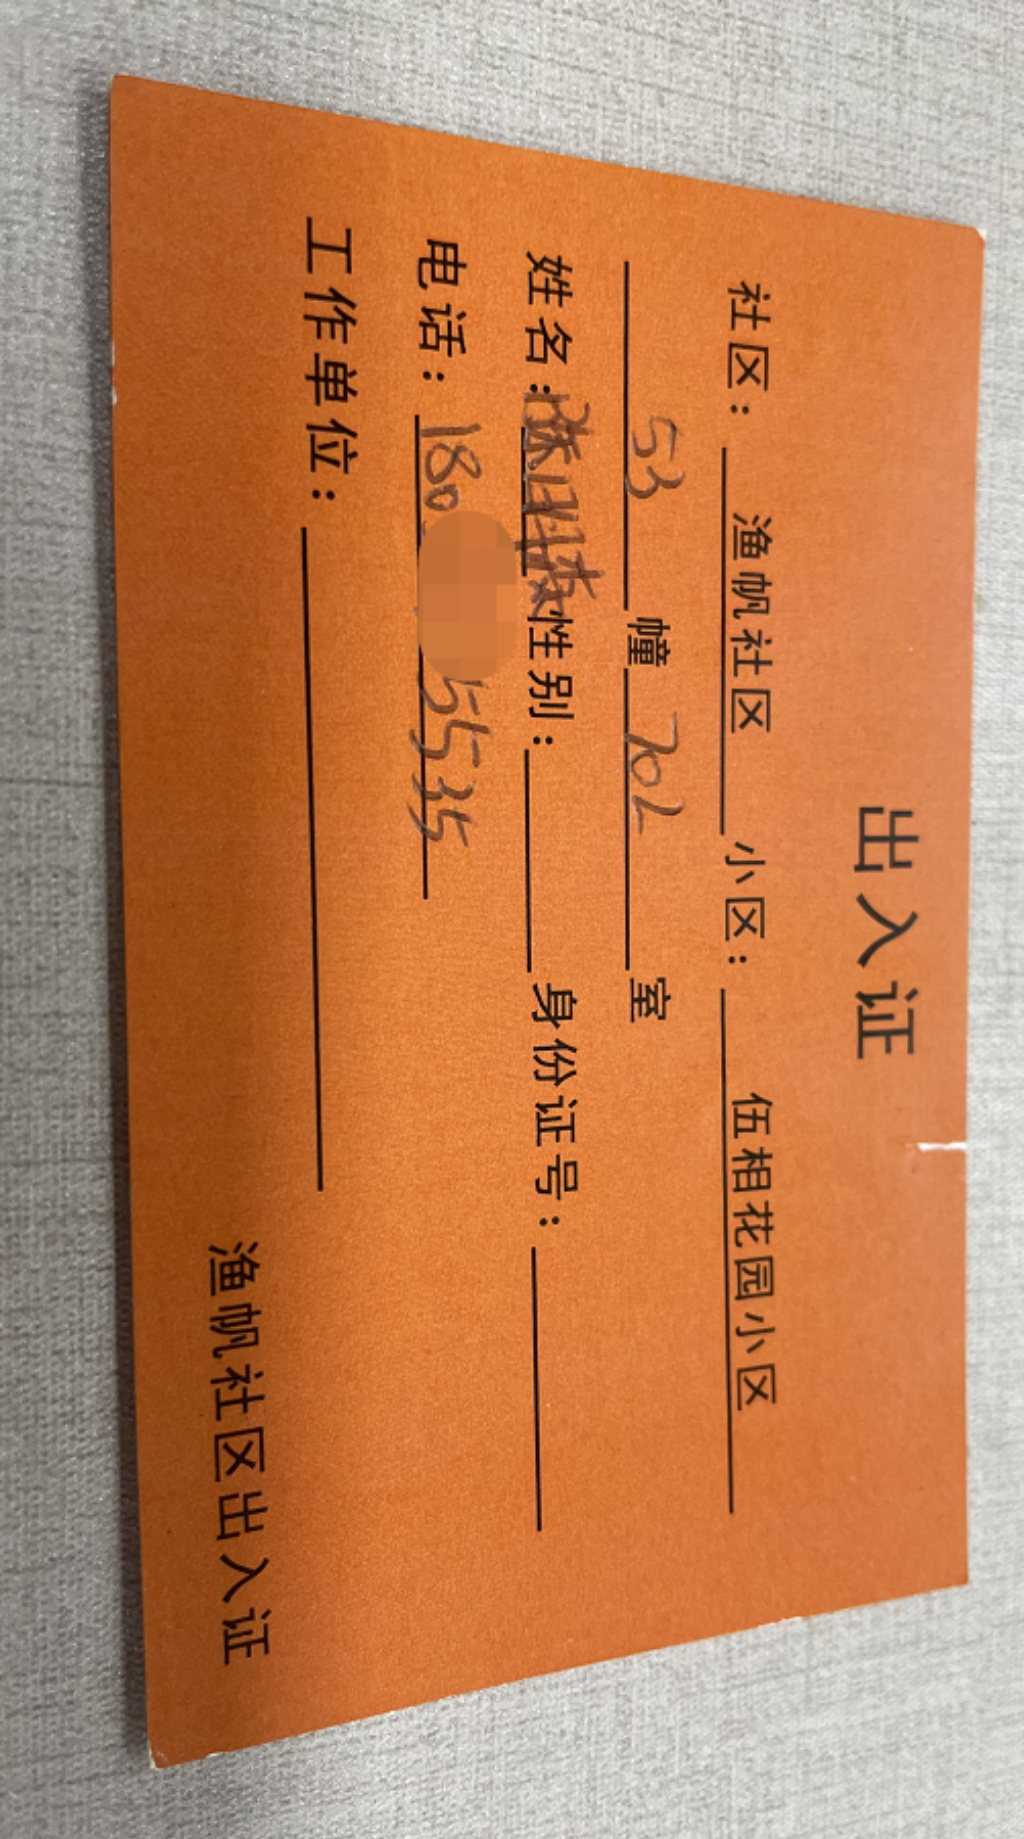 出入证
社区：渔帆社区 小区：伍相花园小区
53幢702室
姓名： 性别： 身份证号：
电话：180 5535
工作单位：
渔帆社区出入证